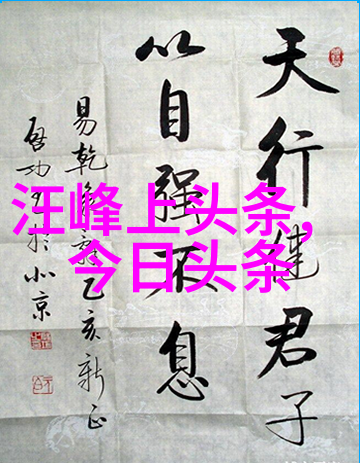 汪峰上头条,
今日头条
天行健君子
以自强不息
易乾乙亥新正
启功於北京